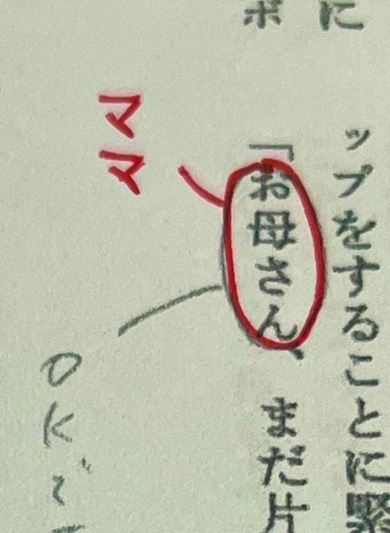 に
ップをすることに緊
ボ
「お母さん、まだ片
ママ
OKですか